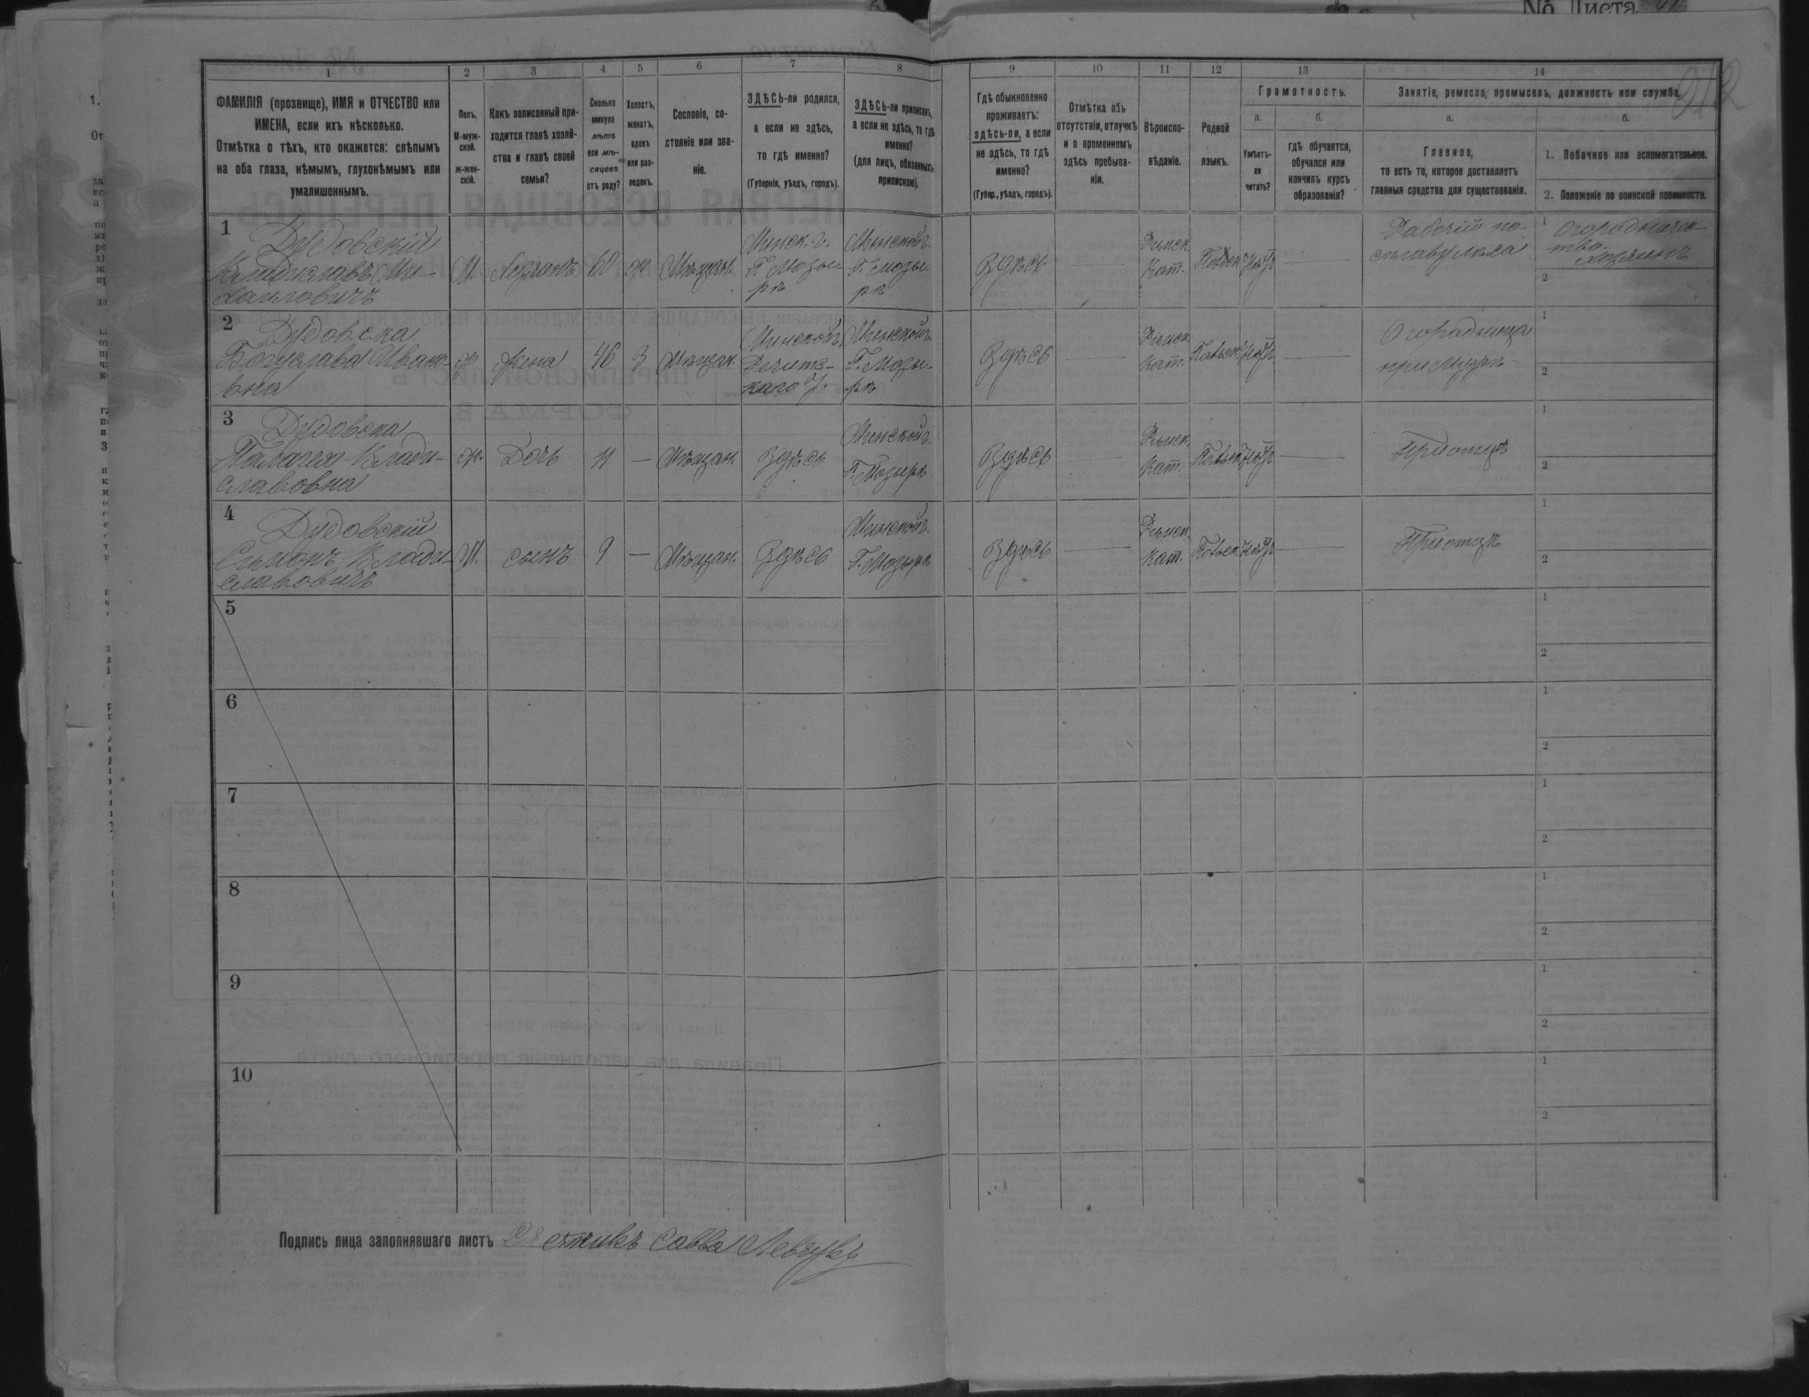 № Листа
1 2 3 4 5 6 7 8 9 10 11 12 13 14
ФАМИЛІЯ (прозвище), ИМЯ и ОТЧЕСТВО или
ИМЕНА, если ихъ нѣсколько.
Отмѣтка о тѣхъ, кто окажется: слѣпымъ
на оба глаза, нѣмымъ, глухонѣмымъ или
умалишеннымъ.
Полъ.
М-муж-
ской.
ж-жен-
скій.
Какъ записанный при-
ходится главѣ хозяй-
ства и главѣ своей
семьи?
Сколько
минуло
лѣтъ
или мѣ-
сяцевъ
отъ роду?
Холостъ,
женатъ,
вдовъ
или раз-
веденъ.
Сословіе, со-
стояніе или зва-
ніе.
ЗДѢСЬ-ли родился,
а если не здѣсь,
то гдѣ именно?
(Губернія, уѣздъ, городъ).
ЗДѢСЬ-ли приписанъ,
а если не здѣсь, то гдѣ
именно?
(для лицъ, обязанныхъ
припискою).
Гдѣ обыкновенно
проживаетъ:
здѣсь-ли, а если
не здѣсь, то гдѣ
именно?
(Губер., уѣздъ, городъ).
Отмѣтка объ
отсутствіи, отлучкѣ
и о временномъ
здѣсь пребыва-
ніи.
Вѣроиспо-
вѣданіе.
Родной
языкъ.
Грамотность.
а.
Умѣетъ-
ли
читать?
б.
гдѣ обучается,
обучался или
кончилъ курсъ
образованія?
Занятіе, ремесло, промыселъ, должность или служба.
а.
Главное,
то есть то, которое доставляетъ
главныя средства для существованія.
б.
1. Побочное или вспомогательное.
2. Положеніе по воинской повинности.
1
Дудовскій
Владиславъ Ми-
хайловичъ
М.
Хозяинъ
60
ж
Мѣщан.
Минск. г.
Г. Мозы-
рѣ
Минской г.
Г. Мозы-
рѣ
Здѣсь
Римск.
Кат.
Польск.
Нѣтъ
Рабочій по
сплаву лѣса
1 Огородниче-
ство
Хозяинъ
2
2
Дудовска
Богуслава Иванов-
вна
ж
Жена
46
З
Мѣщан.
Минской г.
Речиц-
каго у.
Минской г.
Г. Мозы-
рѣ
Здѣсь
Римск.
Кат.
Польск.
Нѣтъ
Огородница
при мужѣ
1
2
3
Дудовска
Палагея Влади-
славовна
ж.
Дочь
11
—
Мѣщан.
Здѣсь
Минской г.
Г. Мозырѣ
Здѣсь
Римск.
Кат.
Польск.
Нѣтъ
При отцѣ
1
2
4
Дудовскій
Симонъ Влади-
славовичъ
М.
сынъ
9
—
Мѣщан.
Здѣсь
Минской г.
Г. Мозырѣ
Здѣсь
Римск.
Кат.
Польск.
Нѣтъ
При отцѣ
1
2
5
1
2
6
1
2
7
1
2
8
1
2
9
1
2
10
1
2
Подпись лица заполнявшаго листъ Счетчикъ Савва Левчукъ